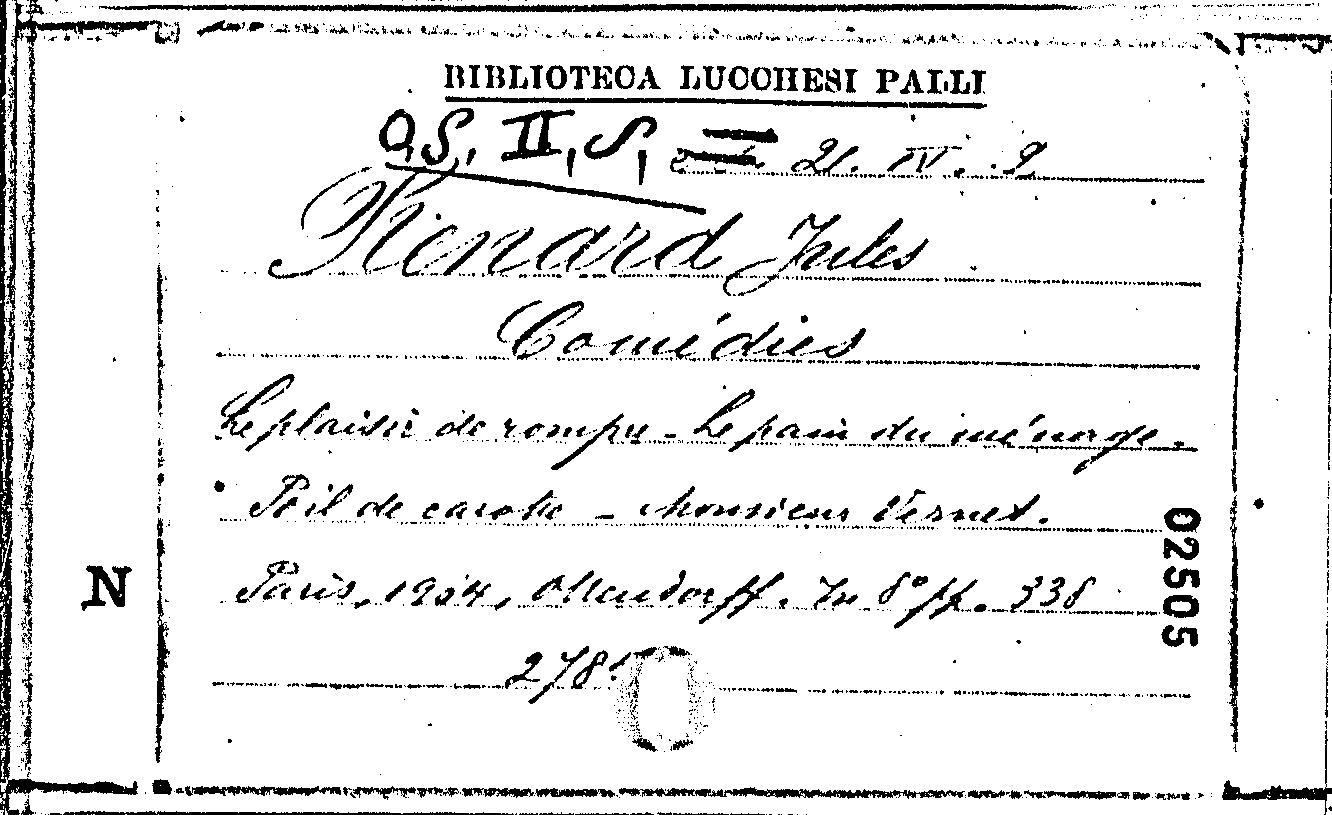 BIBLIOTECA LUCCHESI PALLI
O,S, II, S, 21. IV. 2
Renard Jules
Comédies
Le plaisir de rompre - Le pain du ménage.
Poil de carotte - Monsieur Vernet.
N
Paris, 1904, Ollendorff. In 8° pp. 338
02505